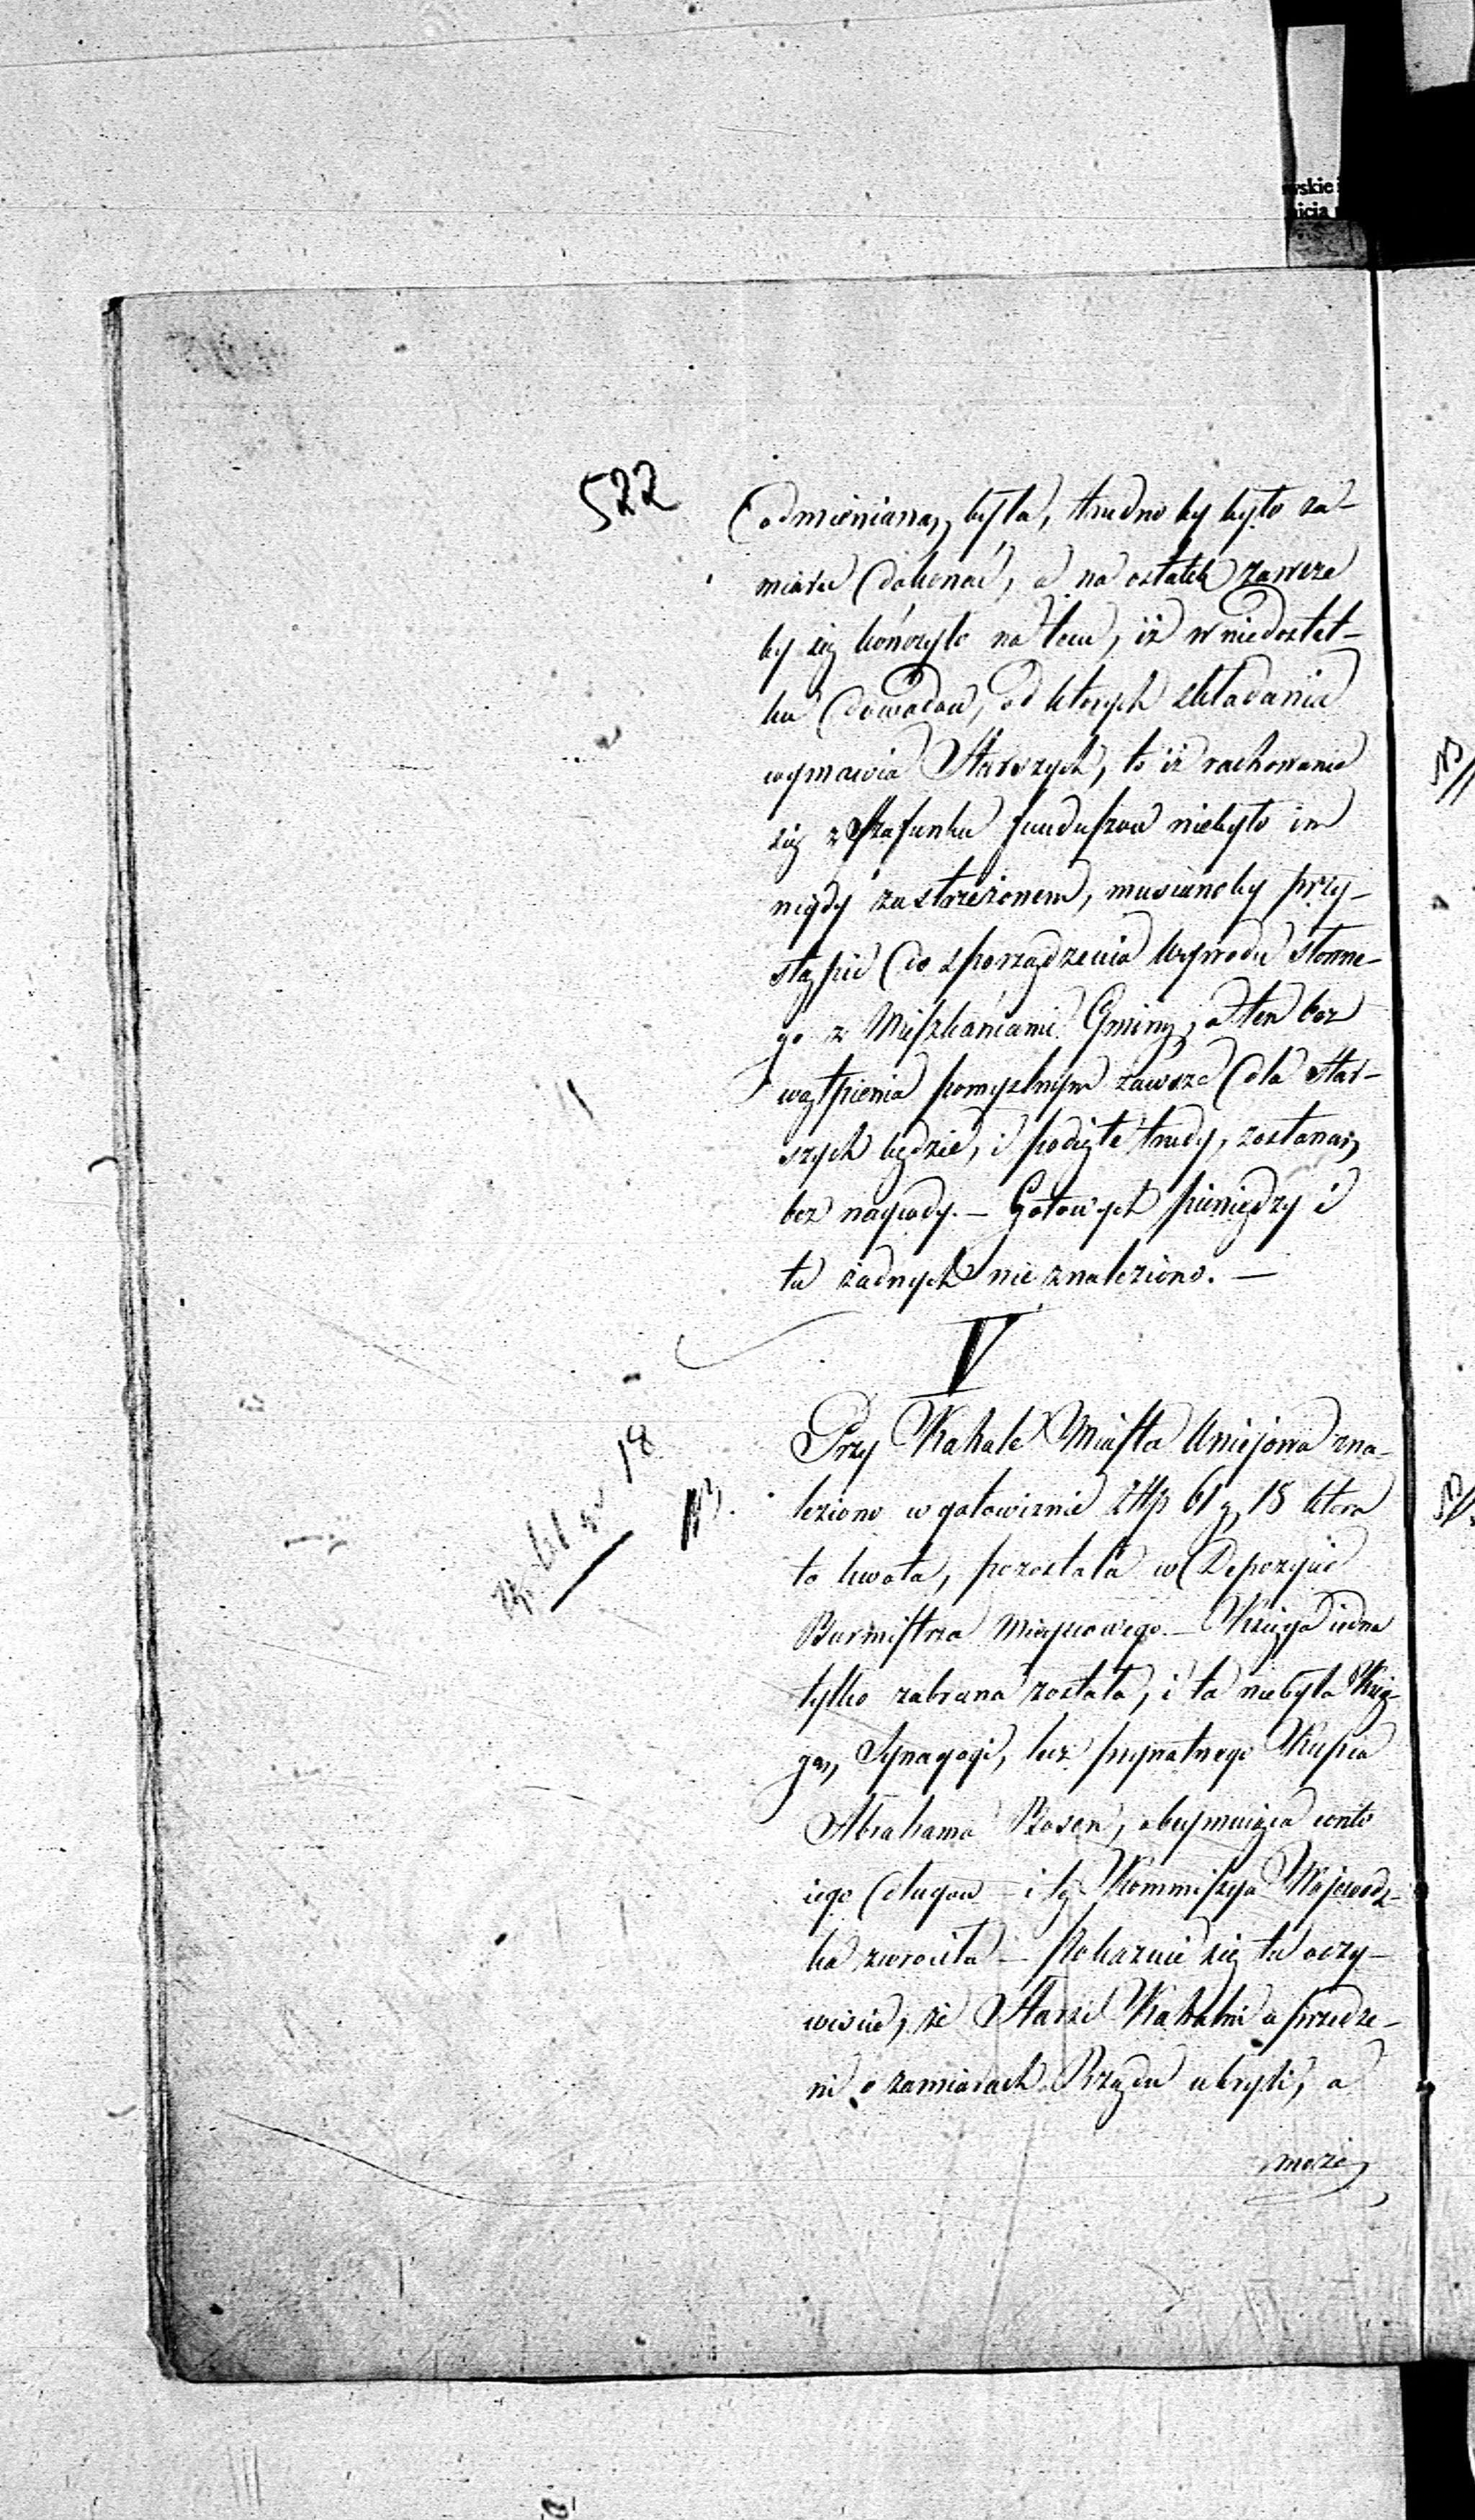 522
odmienianą była, trudno by było za-
miaru dokonać, a na ostatek zawsze
by się kończyło na tem, iż w niedostat-
ku dowodow, od ktorych składania
wymawia Starszych, to iż rachowanie
się z Szafunku funduszow niebyło im
nigdy zastrzeżonem, musianoby przy-
stąpić do sporządzenia wywodu słowne-
go z Mieszkańcami Gminy, a ten bez
wątpienia pomyslnym zawsze dla Star-
szych będzie, i podięte trudy, zostaną
bez nagrody. — Gotowych pieniędzy i
tu żadnych nie znaleziono. —
V
Przy Kahale Miasta Uniejowa zna-
leziono w gotowiznie Złtp 61 g 18 ktora
to kwota, pozostała w Depozycie
Burmistrza mieyscowego. — Xsięga iedna
tylko zabrana została, i ta niebyła Xsię-
gą Synagogi, lecz prywatnego Kupca
Abrahama Rosen, obeymuiąca conto
iego długow — i tę Kommissya Wojewodz-
ka zwrociła — Pokazuie się tu oczy-
wiscie, że Starsi Kahalni uprzedze-
ni o zamiarach Rządu ukryli, a
może
61 gr 18